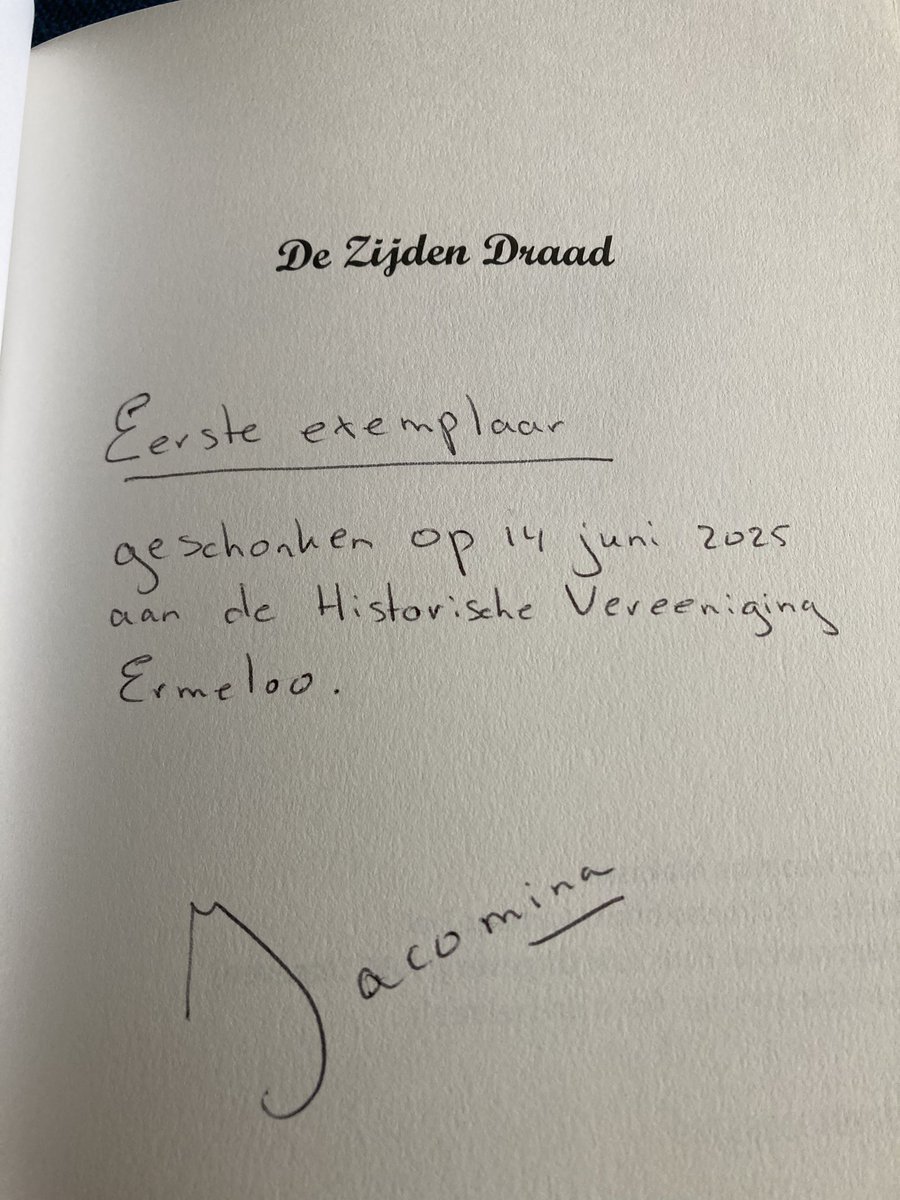 De Zijden Draad
Eerste exemplaar
geschonken op 14 juni 2025
aan de Historische Vereeniging
Ermeloo.
Jacomina